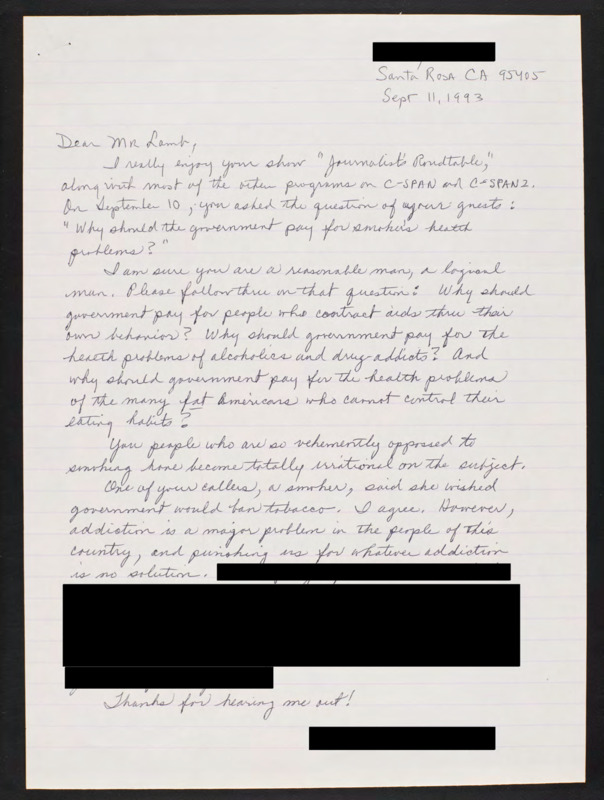 Santa Rosa CA 95405
Sept 11, 1993
Dear Mr Lamb,
I really enjoy your show "Journalist's Roundtable,"
along with most of the other programs on C-SPAN and C-SPAN2.
On September 10, you asked the question of your guests:
"Why should the government pay for smoker's health
problems?"
I am sure you are a reasonable man, a logical
man. Please follow thru on that question: Why should
government pay for people who contract aids thru their
own behavior? Why should government pay for the
health problems of alcoholics and drug addicts? And
why should government pay for the health problems
of the many fat Americans who cannot control their
eating habits?
You people who are so vehemently opposed to
smoking have become totally irrational on the subject.
One of your callers, a smoker, said she wished
government would ban tobacco. I agree. However,
addiction is a major problem in the people of this
country, and punishing us for whatever addiction
is no solution.
Thanks for hearing me out!